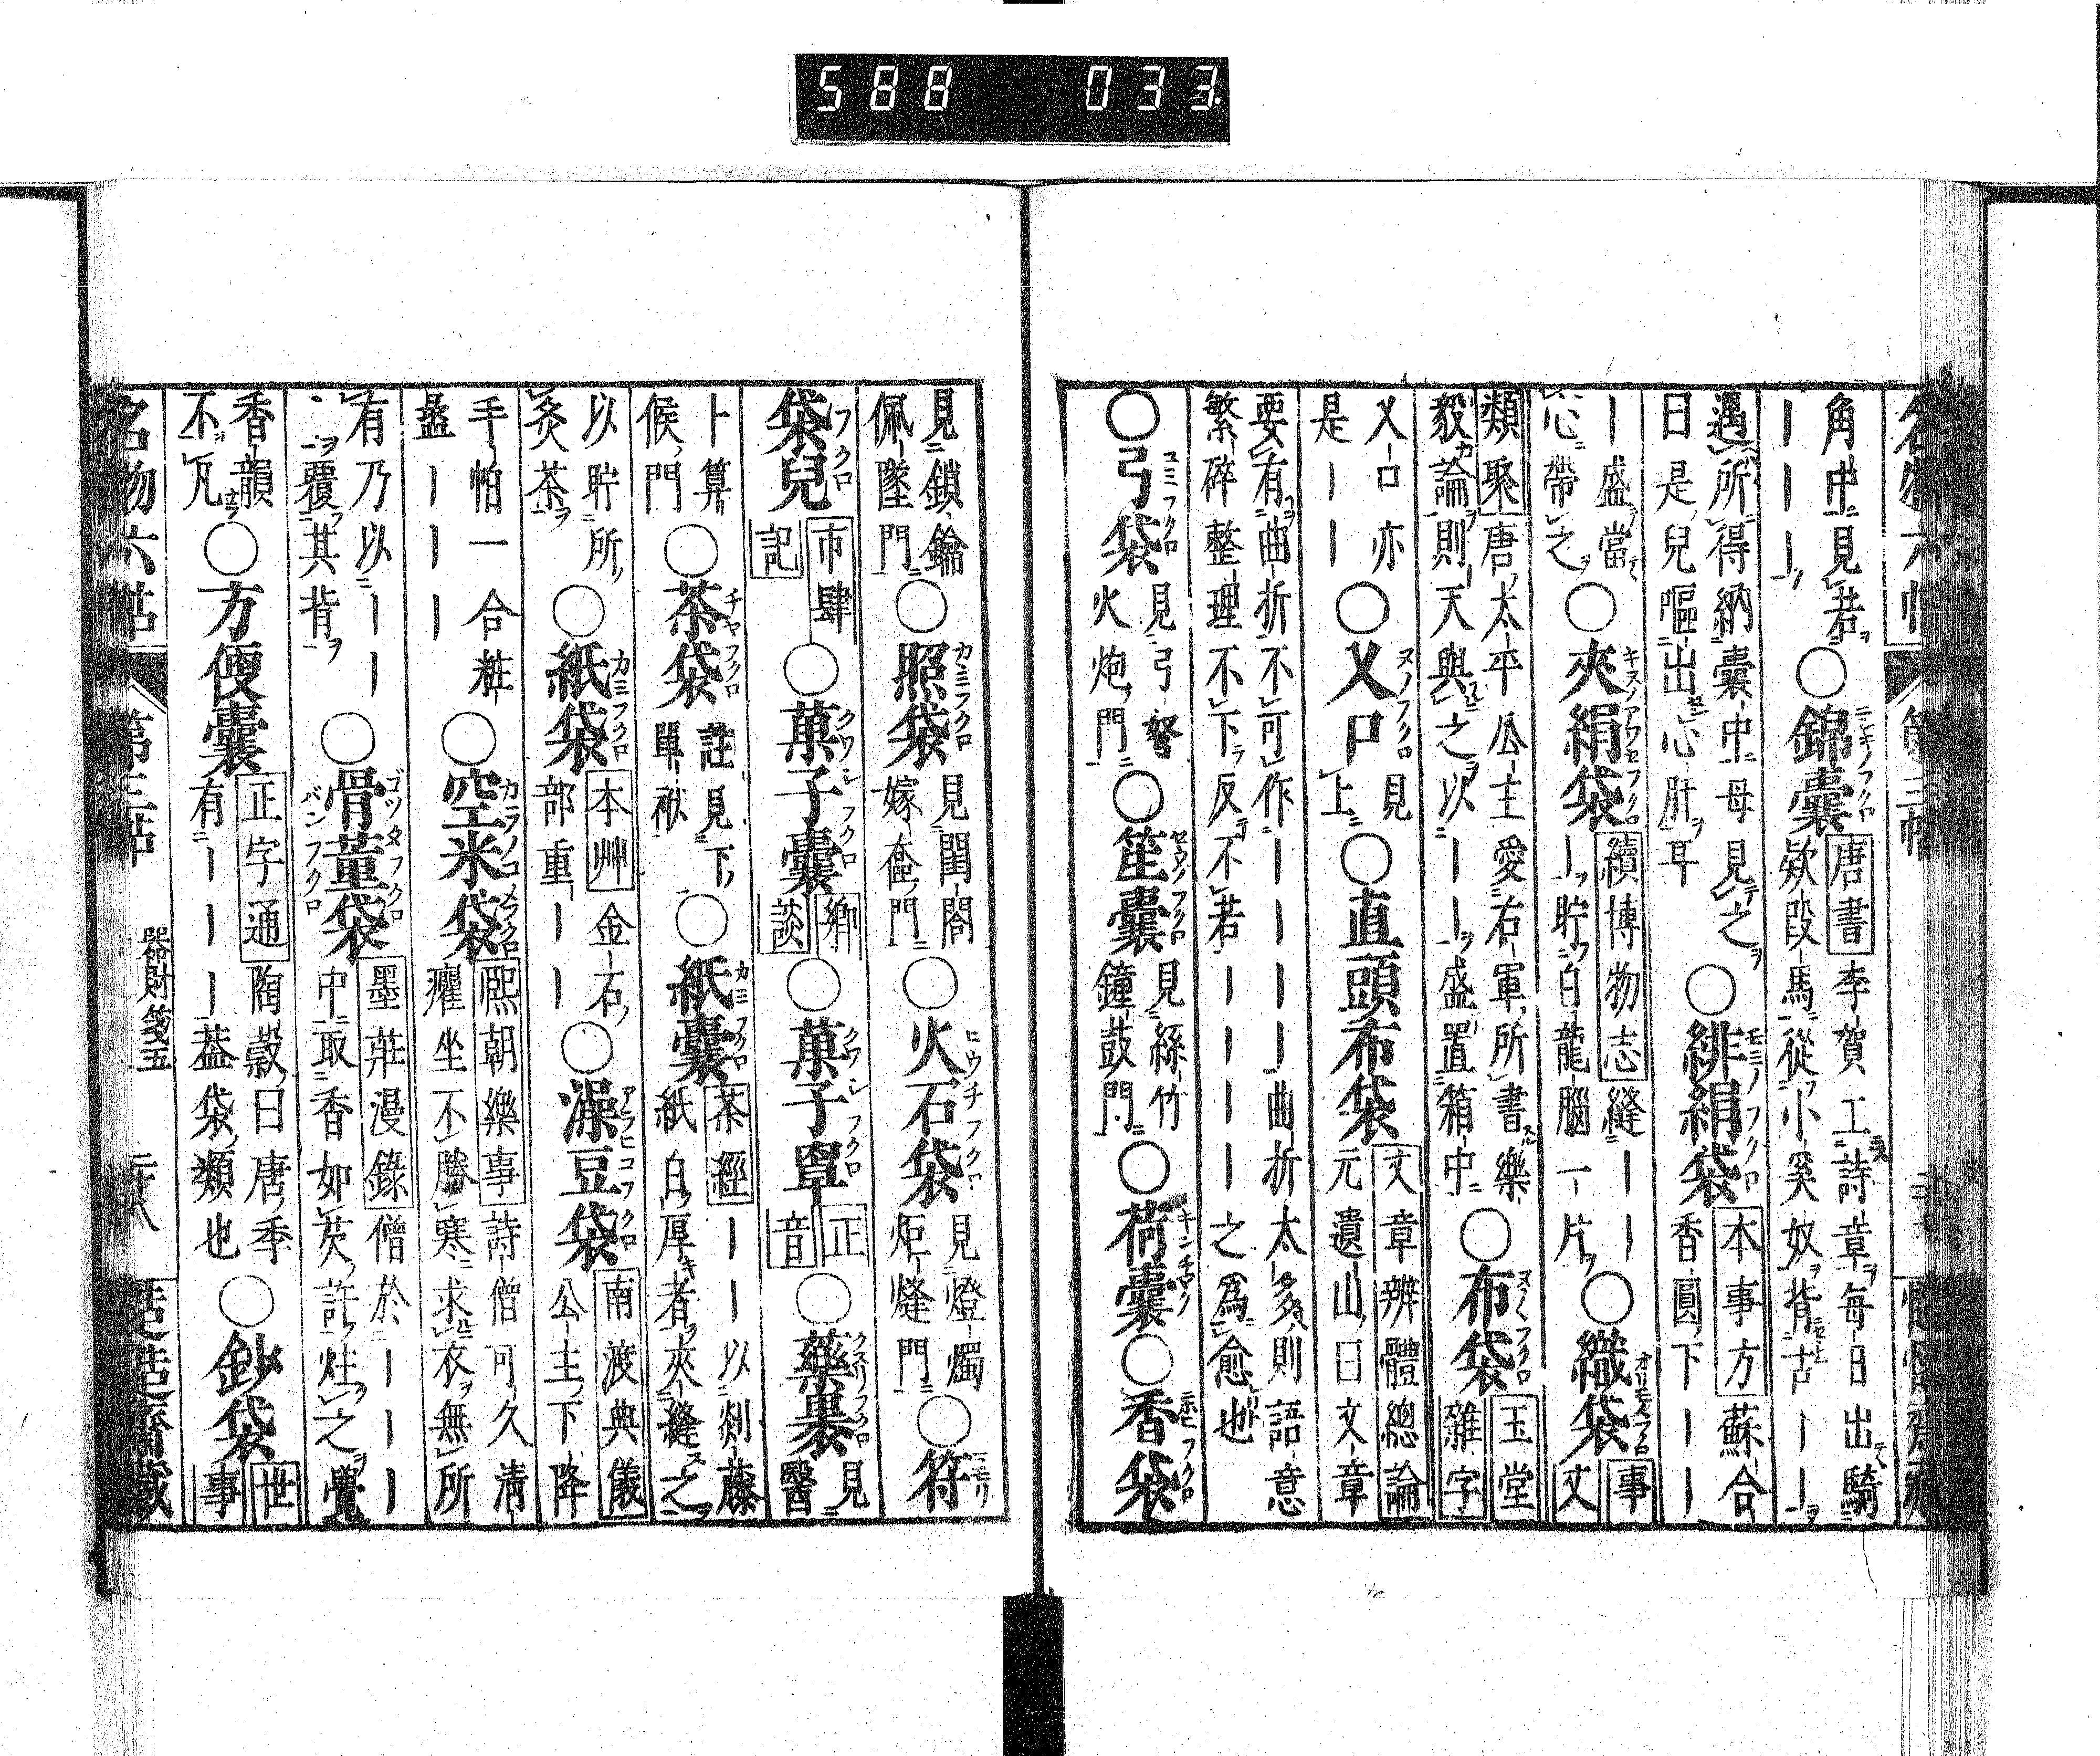 588 033
角中見若
ーーーー
○錦嚢
唐書李賀工詩章毎日出騎
欵段馬從小奚奴背古ーー
遇所得納嚢中母見之
日是兒嘔出心肝耳
○緋絹袋
本事方蘇合
香圓下ーー
ー盛當
心帶之
○夾絹袋
續博物志縫ーー
ー貯白龍腦一片
○織袋
事
文
類聚唐太平公主愛右軍所書樂
毅論則天與之以ーー盛置箱中
○布袋
玉堂
雜字
乂口亦
是ーー
○乂口
見
上
○直頭布袋
文章辨體總論
元遺山曰文章
要有曲折不可作ーーーー曲折太多則語意
繁碎整理不下反不若ーーーー之爲愈也
○弓袋
見弓弩
火炮門
○笙嚢
見絲竹
鐘鼓門
○荷嚢○香袋
見鎖鑰
佩墜門
○照袋
見閨閤
嫁奩門
○火石袋
見燈燭
炬㷭門
○符
袋兒
市肆
記
○菓子嚢
郷
談
○菓子罩
正
音
○藥裹
見
醫
卜算
候門
○茶袋
註見下
單袱
○紙嚢
茶經ーー以剡藤
紙白厚者夾縫之
以貯所
炙茶
○紙袋
本艸金石
部重ーー
○澡豆袋
南渡典儀
公主下降
手帕一合粧
盝ーーー
○空米袋
煕朝樂事詩僧可久清
癯坐不勝寒求衣無所
有乃以ーー
覆其背
○骨董袋
墨莊漫錄僧於ーーー
中取香如芡許炷之覺
香韻
不凡
○方便嚢
正字通陶穀曰唐季
有ーーー葢袋類也
○鈔袋
世
事
名物六帖 第三帖 器財箋五